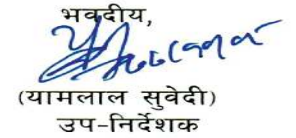 भवदीय,
(यामलाल सुवेदी)
उप-निर्देशक